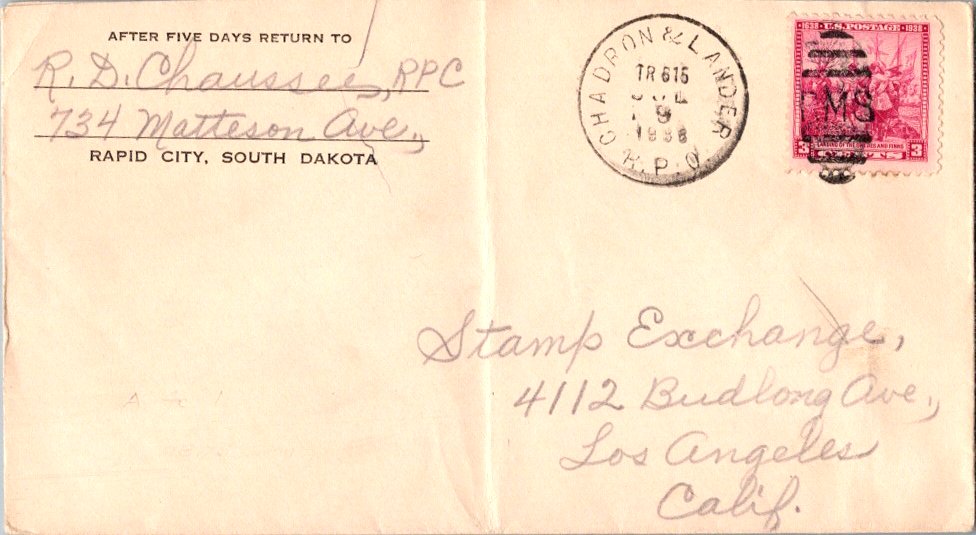 AFTER FIVE DAYS RETURN TO
R. D. Chaussee, RPC
734 Matteson Ave.,
RAPID CITY, SOUTH DAKOTA
CHADRON & LANDER
TR 615
JUL
9
1938
R.P.O
1638 U.S. POSTAGE 1938
RMS
LANDING OF THE SWEDES AND FINNS
3 CENTS 3
Stamp Exchange,
4112 Budlong Ave.,
Los Angeles
Calif.